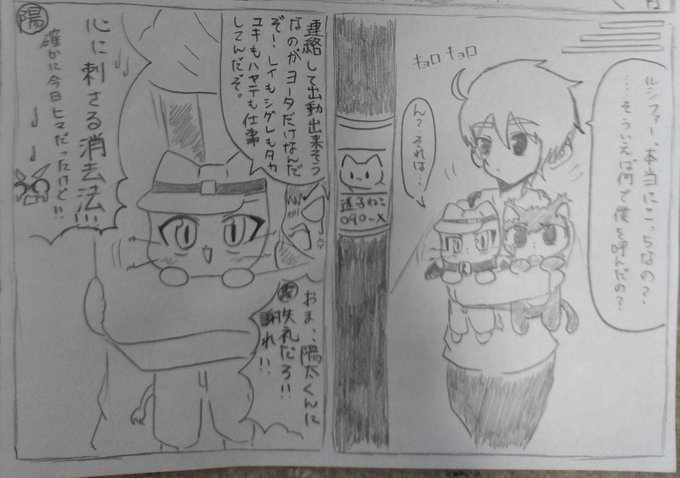 ルシファー、本当にこっちなの?
……そういえば何で僕を呼んだの?
キョロ キョロ
ん?それは…
迷子ねこ
090-X
連絡して出動出来そう
なのがヨータだけなんだ
ぞ!レイもシグレもタカ
ユキもハヤテも仕事
してんだぞ。
おま…陽太くんに
失礼だろ!!
謝れ!!
陽
心に刺さる消去法!!!
確かに今日ヒマだったけど!!